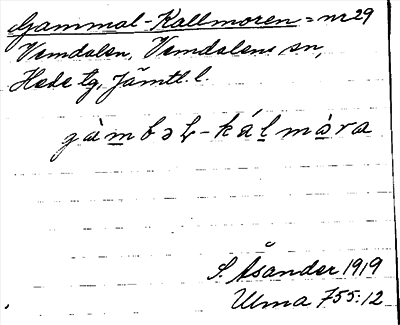 Gammal-Kallmoren = nr 29
Vemdalen, Vemdalens sn,
Hede tg, Jämtl. l.
gàmbəł-kálmòra
S. Åsander 1919
Ulma 755:12